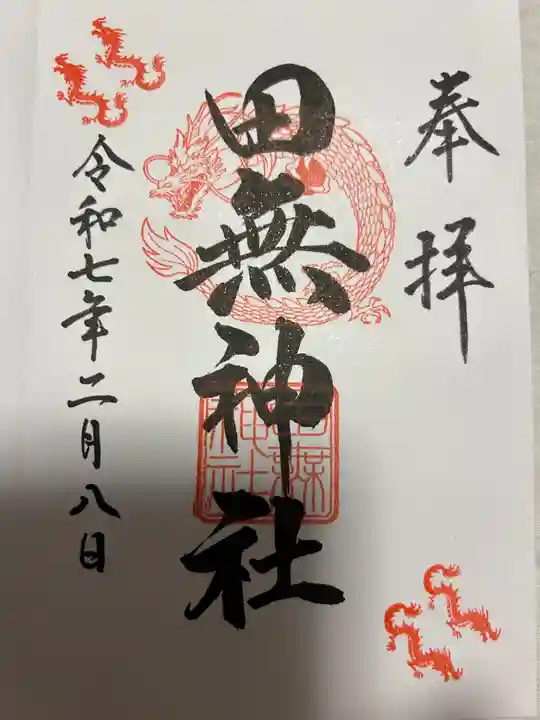 奉拝
田無神社
令和七年二月八日
田無
神社